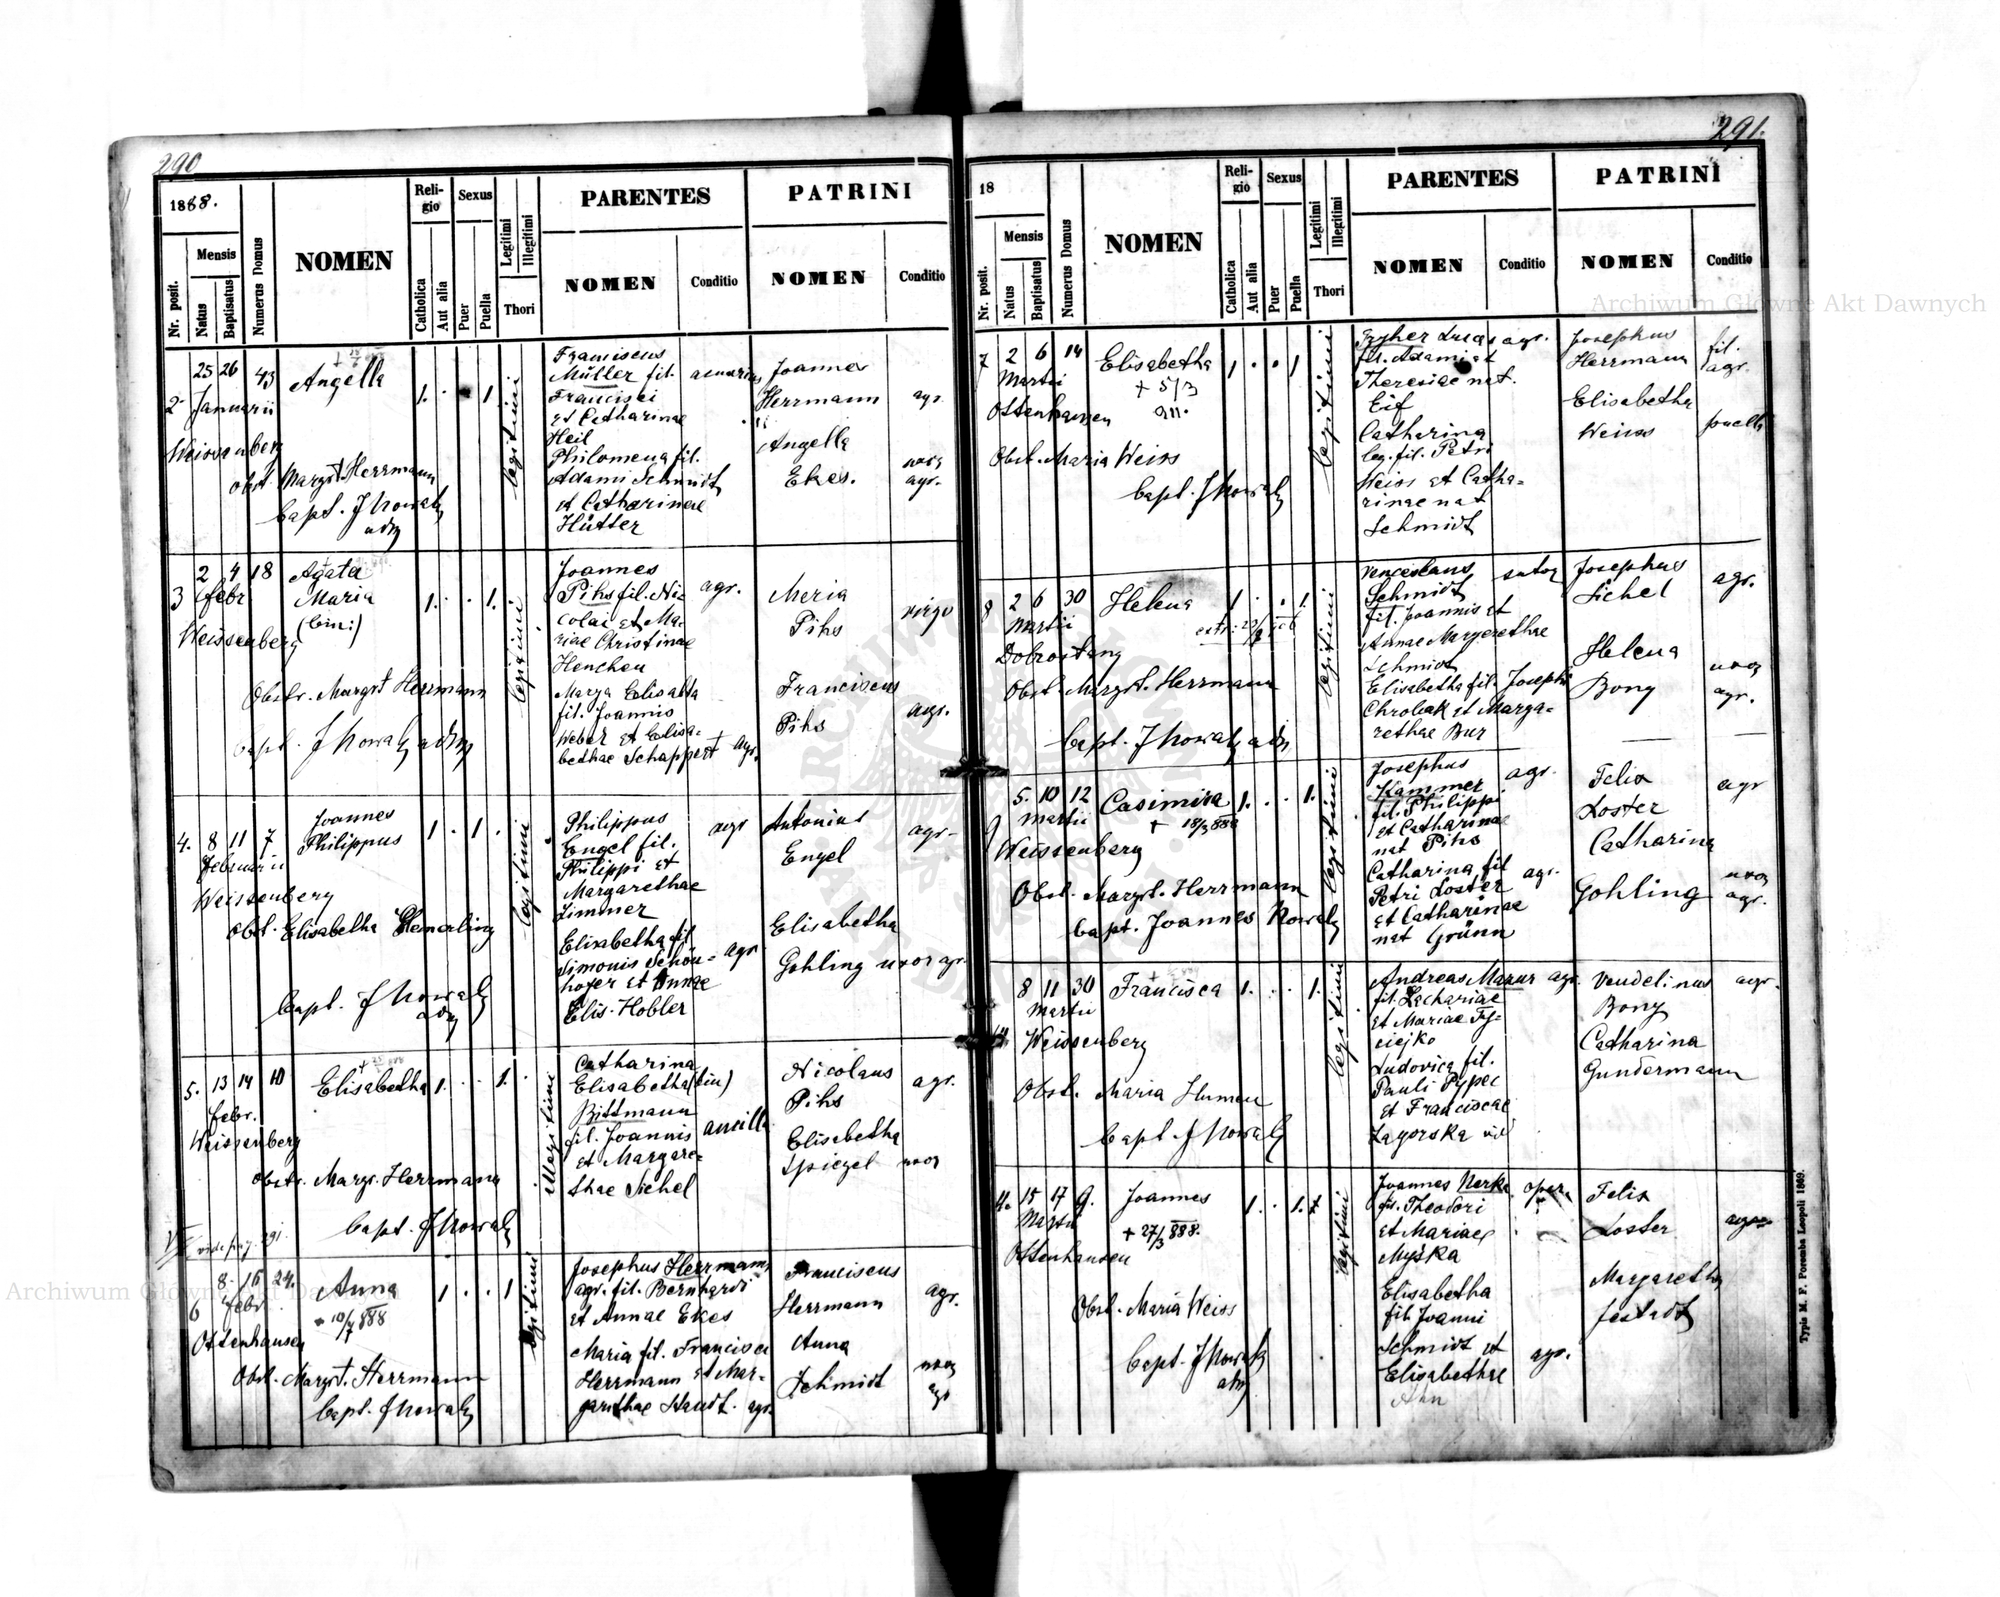 290
1888.
Nr. posit.
Mensis
Natus
Baptisatus
Numerus Domus
NOMEN
Religio
Catholica
Aut alia
Sexus
Puer
Puella
Legitimi
Illegitimi
Thori
PARENTES
NOMEN
Conditio
PATRINI
NOMEN
Conditio
2 25 26 43 Angella 1. 1.
Januarii
Weissenberg
Obst. Margrt Herrmann
bapt. J Nowak
adm
legitimi
Franciscus
Müller fil.
Francisci
et Catharinae
Heil
Philomena fil.
Adami Schmidt
et Catharinae
Hütter
Joannes
Herrmann agr.
Angella
Ekes. uxor
agr.
3 2 4 18 Agata
Febr Maria 1. 1.
(bin:)
Weissenberg
Obstr. Margrt Herrmann
bapt. J Nowak adm
legitimi
Joannes
Pihs fil. Ni- agr.
colai et Ma-
riae Christinae
Henchen
Elisabta
fil. Joannis
Weber et Elisa-
bethae Schappert agr.
Meria virgo
Pihs
Franciscus
Pihs agr.
4. 8 11 7 Joannes
Philippus 1 1
Februarii
Weissenberg
Obst. Elisabetha Hemerling
bapt. J Nowak
adm
legitimi
Philippus agr
Engel fil.
Philippi et
Margarethae
Zimmer
Elisabetha fil.
Simonis Schön- agr
hofer et Annae
Elis. Hobler
Antonius agr-
Engel
Elisabetha
Gohling uxor agr.
5. 13 14 10 Elisabetha 1. 1.
Febr.
Weissenberg
Obstr. Margr. Herrmann
bapt. J Nowak
illegitimi
Catharina
Elisabetha (bin)
Bittmann
fil. Joannis ancilla
et Margare-
thae Sichel
Nicolaus agr.
Pihs
Elisabetha
Spiegel uxor
vide pag. 291.
6 8. 16 24. Anna 1 1
Febr. 10/7 888
Ottenhausen
Obst. Margrt. Herrmann
bapt. J Nowak
legitimi
Josephus Herrmann
agr. fil. Bernhardi
et Annae Ekes
Maria fil. Francisci
Herrmann et Mar-
garethae Staudt. agr.
Franciscus
Herrmann agr.
Anna
Schmidt uxor
agr
291.
18
Nr. posit.
Mensis
Natus
Baptisatus
Numerus Domus
NOMEN
Religio
Catholica
Aut alia
Sexus
Puer
Puella
Legitimi
Illegitimi
Thori
PARENTES
NOMEN
Conditio
PATRINI
NOMEN
Conditio
7 2 6 14 Elisabetha 1 1
Martii + 5/3
Ottenhausen
Obst. Maria Weiss
bapt. J Nowak
legitimi
Lucas agr.
fil. Adami et
Theresiae nat.
Eif
Catharina
leg. fil. Petri
Weiss et Catha-
rinae nat
Schmidt
Josephus fil.
Herrmann agr.
Elisabetha
Weiss puella
8 2 6 30 Helena 1 1.
Martii
Dobrostany
Obst. Margrt. Herrmann
bapt. J Nowak adm
legitimi
Venceslaus sutor
Schmidt
fil. Joannis et
Annae Margarethae
Schmidt
Elisabetha fil. Josephi
Chrobak et Marga-
rethae Bur
Josephus
Sichel agr.
Helena uxor
Bony agr.
9 5. 10 12 Casimira 1. 1.
Martii + 18/3 888
Weissenberg
Obst. Margrt. Herrmann
bapt. Joannes Nowak
legitimi
Josephus agr.
Kammer
fil. Philippi
et Catharinae
nat Pihs
Catharina fil
Petri Loster agr.
et Catharinae
nat Grünn
Felix agr
Loster
Catharina
Gohling uxor
agr.
8 11 30 Francisca 1. 1.
Martii
Weissenberg
Obst. Maria Humen
bapt. J Nowak
legitimi
Andreas Mazur agr.
fil. Zachariae
et Mariae Fy-
ciejko
Ludovica fil.
Pauli Pypec
et Franciscae
Zagorska
Vendelinus agr.
Bony
Catharina
Gundermann
15 17 9. Joannes 1. 1.
Martii + 27/3 888.
Ottenhausen
Obst. Maria Weiss
bapt. J Nowak
adm
legitimi
Joannes Nerka
fil. Theodori
et Mariae
Myska
Elisabetha
fil Joanni
Schmidt et agr.
Elisabethae
Ahn
Felix
Loster
Margaretha
festadt
Typis M. F. Poremba Leopoli 1869.
Archiwum Główne Akt Dawnych
Archiwum Główne Akt Dawnych